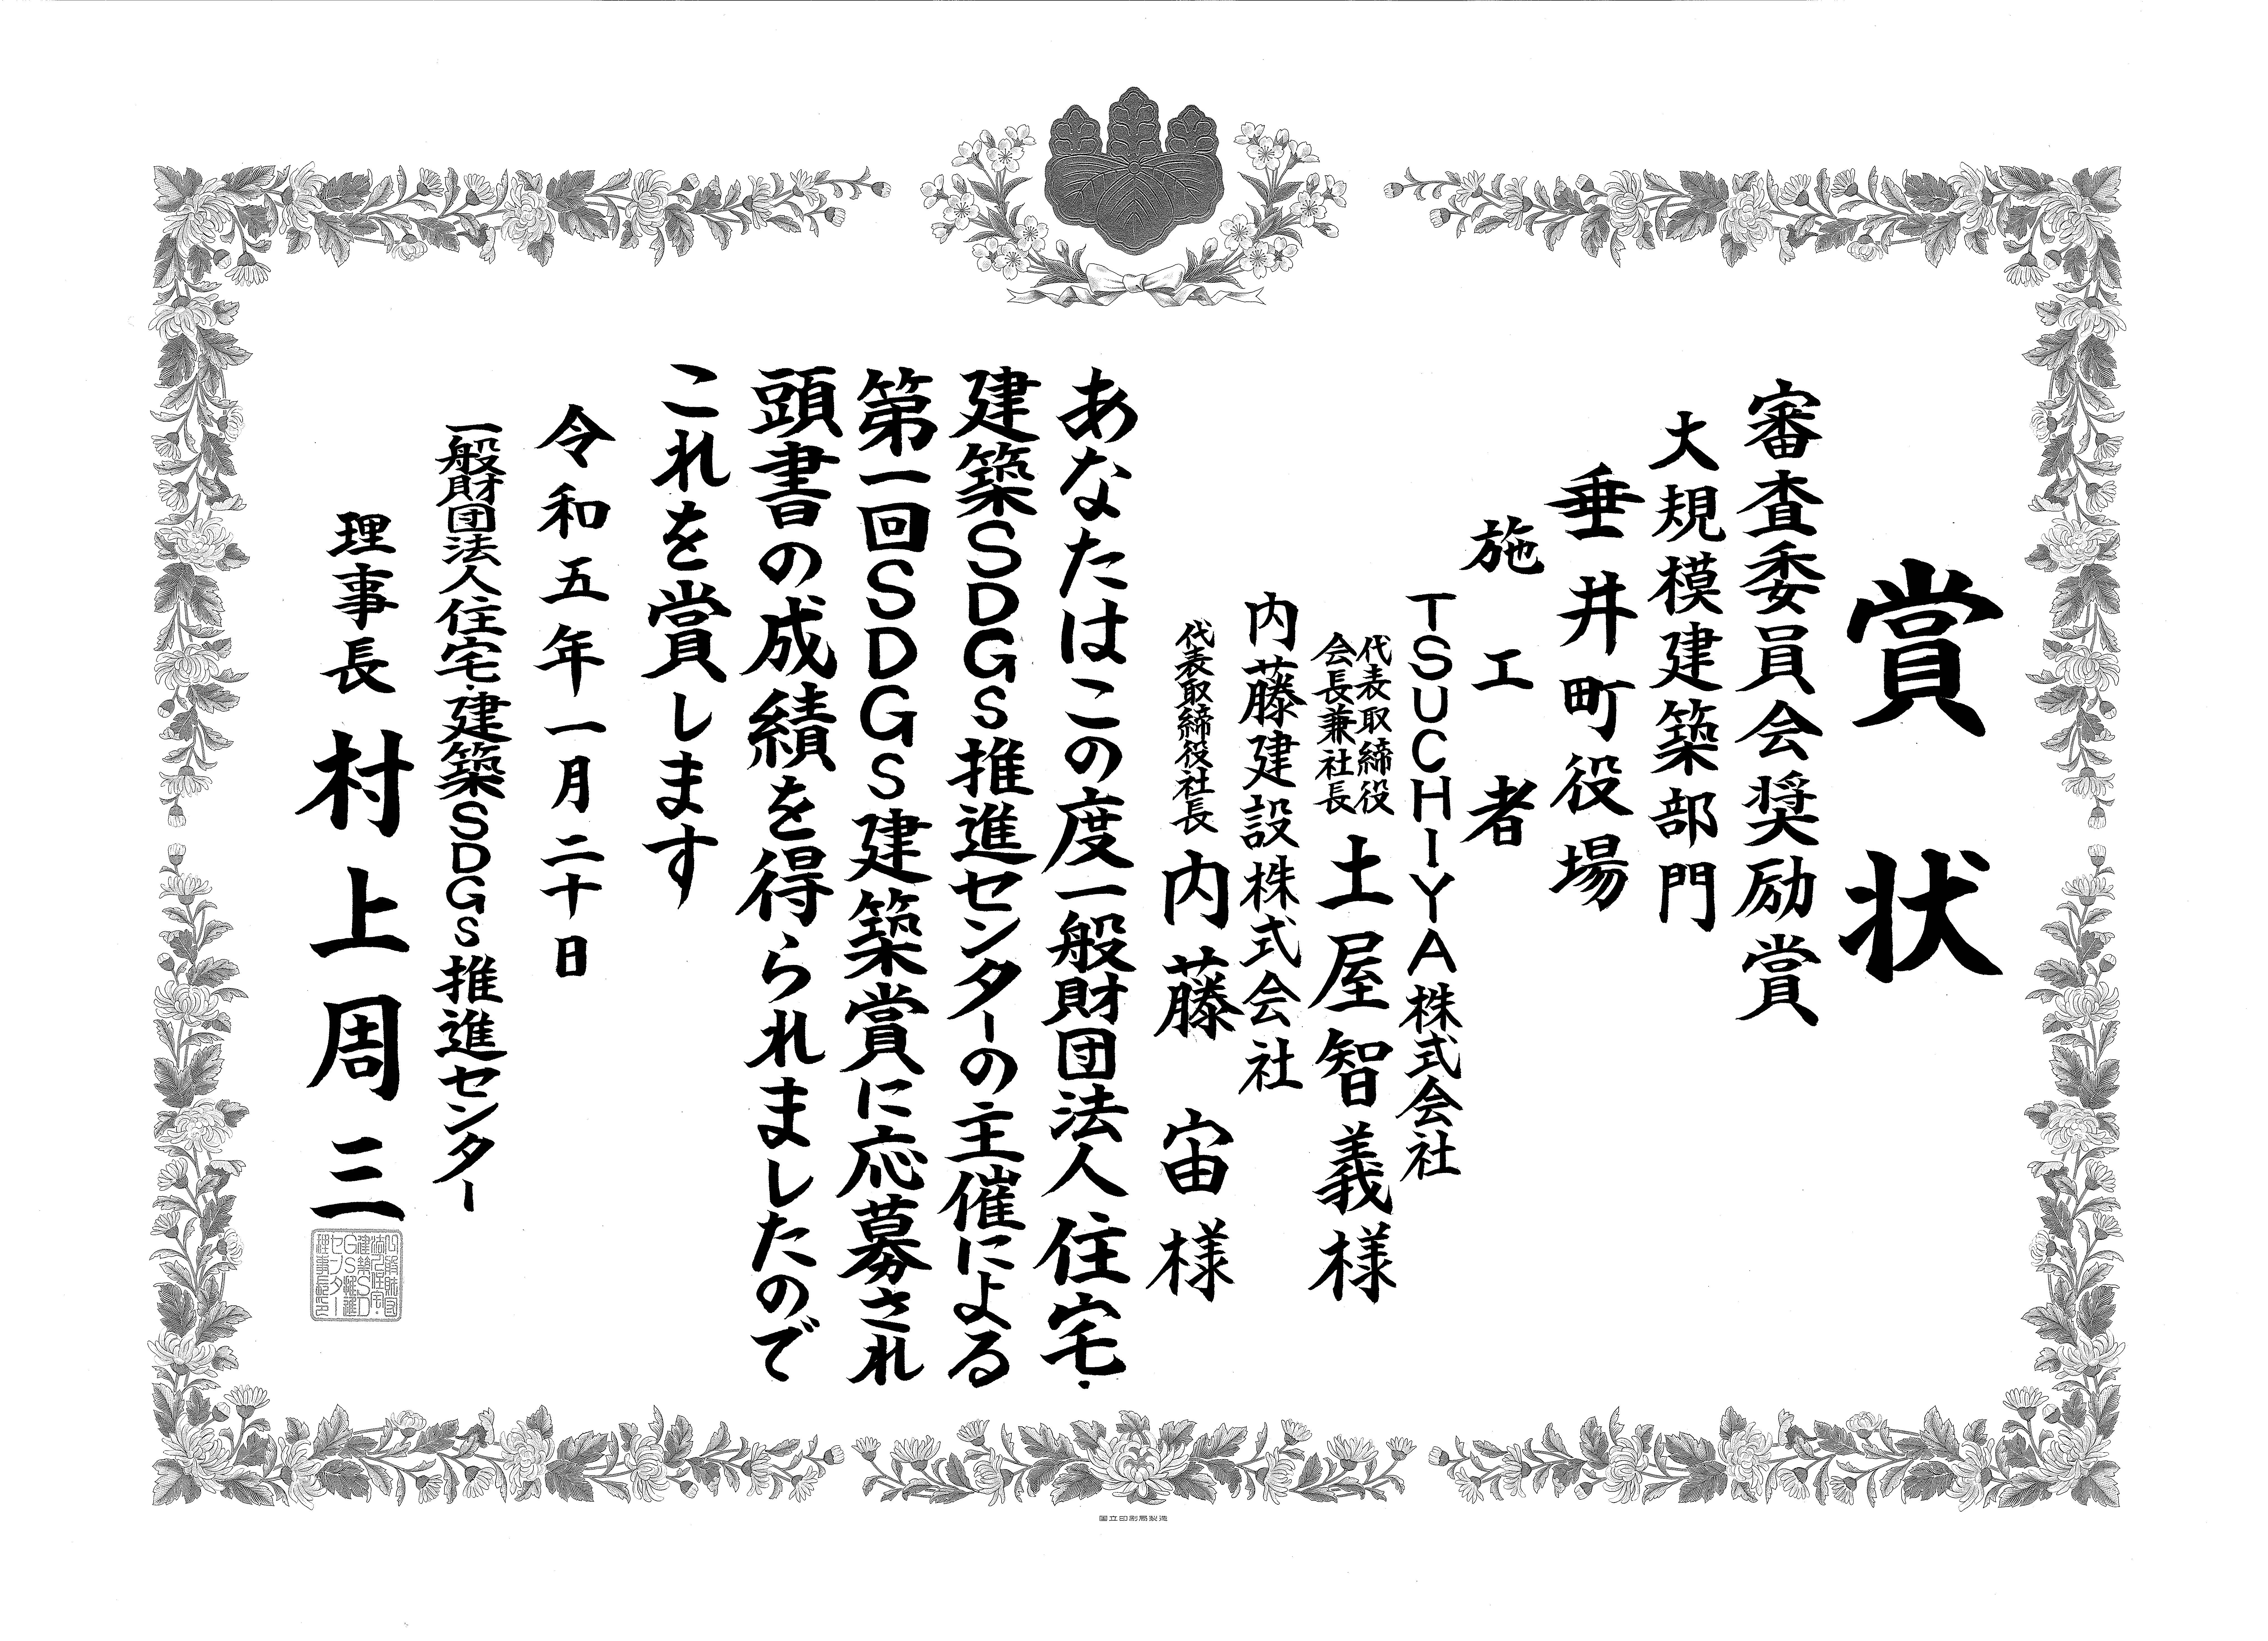 賞状
審査委員会奨励賞
大規模建築部門
垂井町役場
施工者
TSUCHIYA株式会社
代表取締役
会長兼社長
土屋智義様
内藤建設株式会社
代表取締役社長 内藤 宙様
あなたはこの度一般財団法人住宅・
建築SDGs推進センターの主催による
第一回SDGs建築賞に応募され
頭書の成績を得られましたので
これを賞します
令和五年一月二十日
一般財団法人住宅・建築SDGs推進センター
理事長 村上周三
一般財団
法人住宅・
建築SD
Gs推進
センター
理事長之印
国立印刷局製造